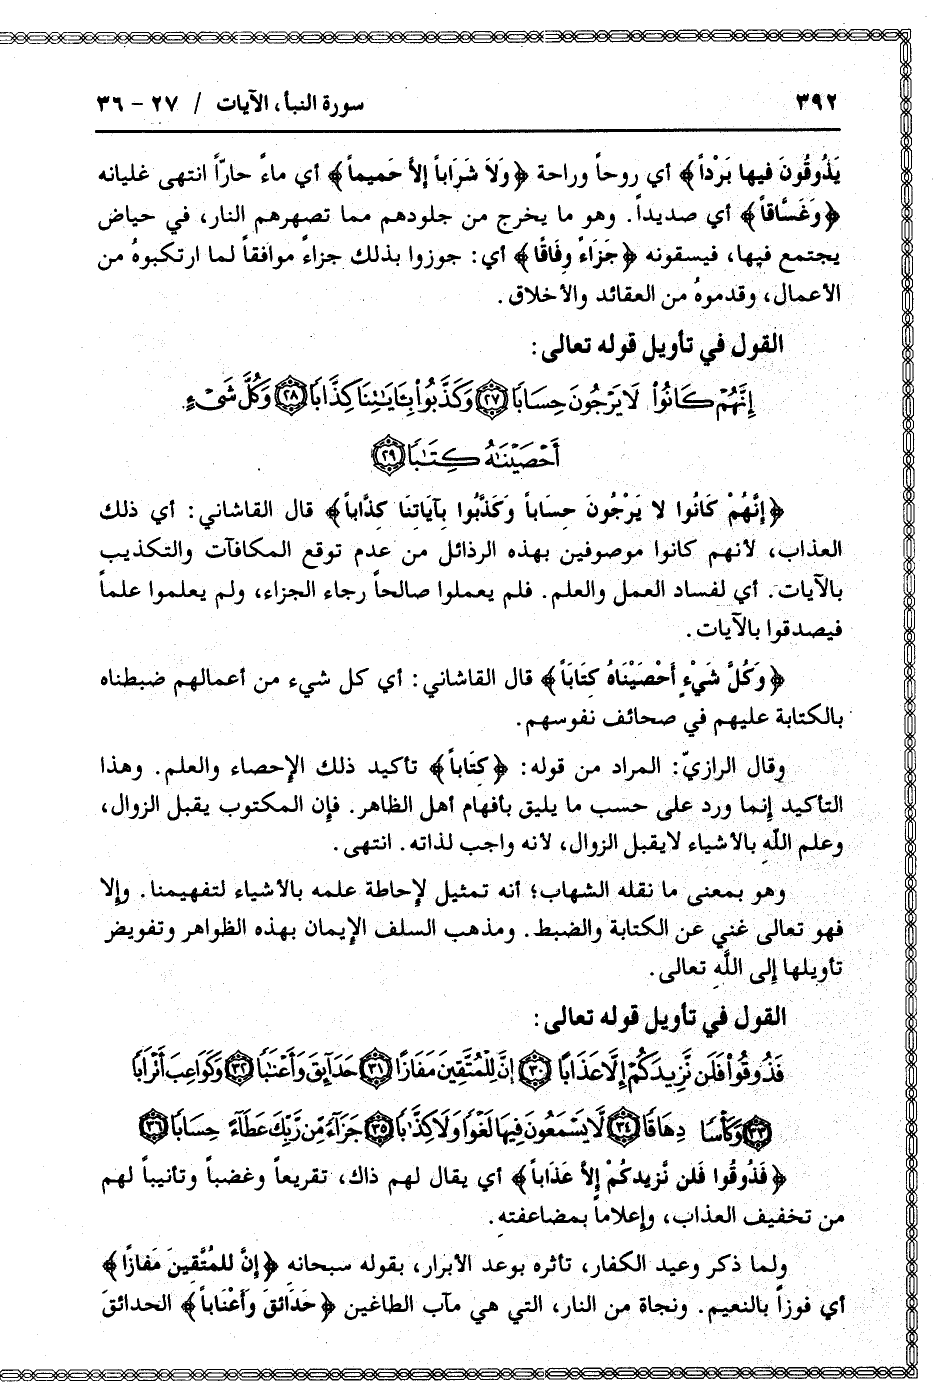 ٣٩٢
سورة النبأ، الآيات / ٢٧ - ٣٦
يَذُوقُونَ فيها بَرْداً﴾ أي روحاً وراحة ﴿وَلاَ شَرَاباً إلاَّ حَميماً﴾ أي ماءً حارّاً انتهى غليانه
﴿وَغَسَّاقاً﴾ أي صديداً. وهو ما يخرج من جلودهم مما تصهرهم النار، في حياض
يجتمع فيها، فيسقونه ﴿جَزَاءً وِفَاقًا﴾ أي: جوزوا بذلك جزاءً موافقاً لما ارتكبوهُ من
الأعمال، وقدموهُ من العقائد والأخلاق.
القول في تأويل قوله تعالى:
إِنَّهُمْ كَانُواْ لَا يَرْجُونَ حِسَابًا ٢٧ وَكَذَّبُواْ بِـَٔايَـٰتِنَا كِذَّابًا ٢٨ وَكُلَّ شَىْءٍ
أَحْصَيْنَـٰهُ كِتَـٰبًا ٢٩
﴿إِنَّهُمْ كَانُوا لا يَرْجُونَ حِسَاباً وَكَذَّبُوا بِآيَاتنَا كِذَّاباً﴾ قال القاشاني: أي ذلك
العذاب، لأنهم كانوا موصوفين بهذه الرذائل من عدم توقع المكافآت والتكذيب
بالآيات. أي لفساد العمل والعلم. فلم يعملوا صالحاً رجاء الجزاء، ولم يعلموا علماً
فيصدقوا بالآيات.
﴿وَكُلَّ شَيْءٍ أَحْصَيْنَاهُ كِتَاباً﴾ قال القاشاني: أي كل شيء من أعمالهم ضبطناه
بالكتابة عليهم في صحائف نفوسهم.
وقال الرازيّ: المراد من قوله: ﴿كِتَاباً﴾ تأكيد ذلك الإحصاء والعلم. وهذا
التأكيد إنما ورد على حسب ما يليق بأفهام أهل الظاهر. فإن المكتوب يقبل الزوال،
وعلم اللَّهِ بالأشياء لايقبل الزوال، لأنه واجب لذاته. انتهى.
وهو بمعنى ما نقله الشهاب؛ أنه تمثيل لإحاطة علمه بالأشياء لتفهيمنا. وإلا
فهو تعالى غني عن الكتابة والضبط. ومذهب السلف الإيمان بهذه الظواهر وتفويض
تأويلها إلى اللَّهِ تعالى.
القول في تأويل قوله تعالى:
فَذُوقُواْ فَلَن نَّزِيدَكُمْ إِلَّا عَذَابًا ٣٠ إِنَّ لِلْمُتَّقِينَ مَفَازًا ٣١ حَدَآئِقَ وَأَعْنَـٰبًا ٣٢ وَكَوَاعِبَ أَتْرَابًا
٣٣ وَكَأْسًا دِهَاقًا ٣٤ لَّا يَسْمَعُونَ فِيهَا لَغْوًا وَلَا كِذَّٰبًا ٣٥ جَزَآءً مِّن رَّبِّكَ عَطَآءً حِسَابًا ٣٦
﴿فَذُوقُوا فَلن نَّزيدكُمْ إلاَّ عَذَاباً﴾ أي يقال لهم ذاك، تقريعاً وغضباً وتأنيباً لهم
من تخفيف العذاب، وإعلاماً بمضاعفتهِ.
ولما ذكر وعيد الكفار، تأثره بوعد الأبرار، بقوله سبحانه ﴿إنَّ للمُتَّقينَ مَفازًا﴾
أي فوزاً بالنعيم. ونجاة من النار، التي هي مآب الطاغين ﴿حَدَائقَ وَأَعْنَاباً﴾ الحدائقَ